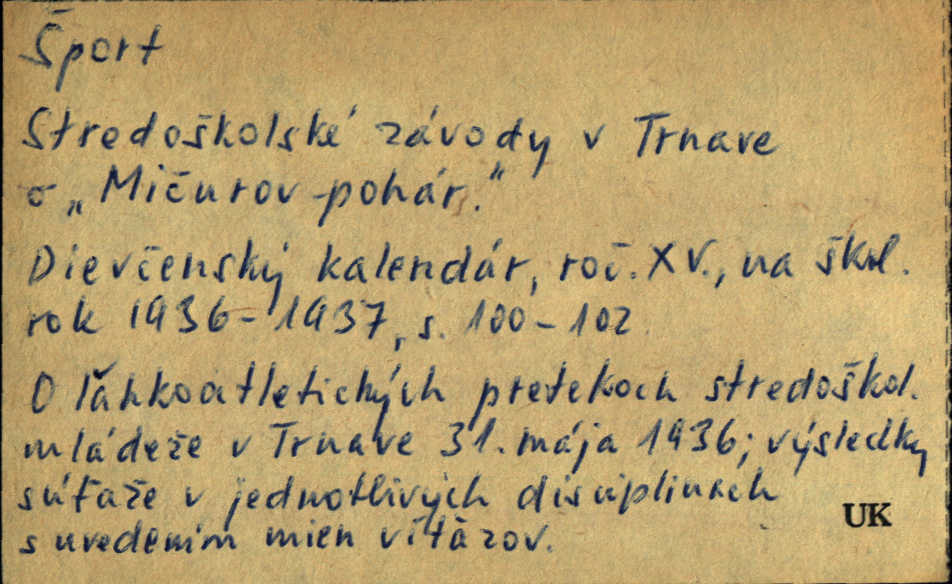 Šport
Stredoškolské závody v Trnave
o „Mičurov pohár."
Dievčenský kalendár, roč. XV., na škol.
rok 1936-1937, s. 100-102
O ľahkoatletických pretekoch stredoškol.
mládeže v Trnave 31. mája 1936; výsledky
súťaže v jednotlivých disciplinach
s uvedením mien víťazov.
UK